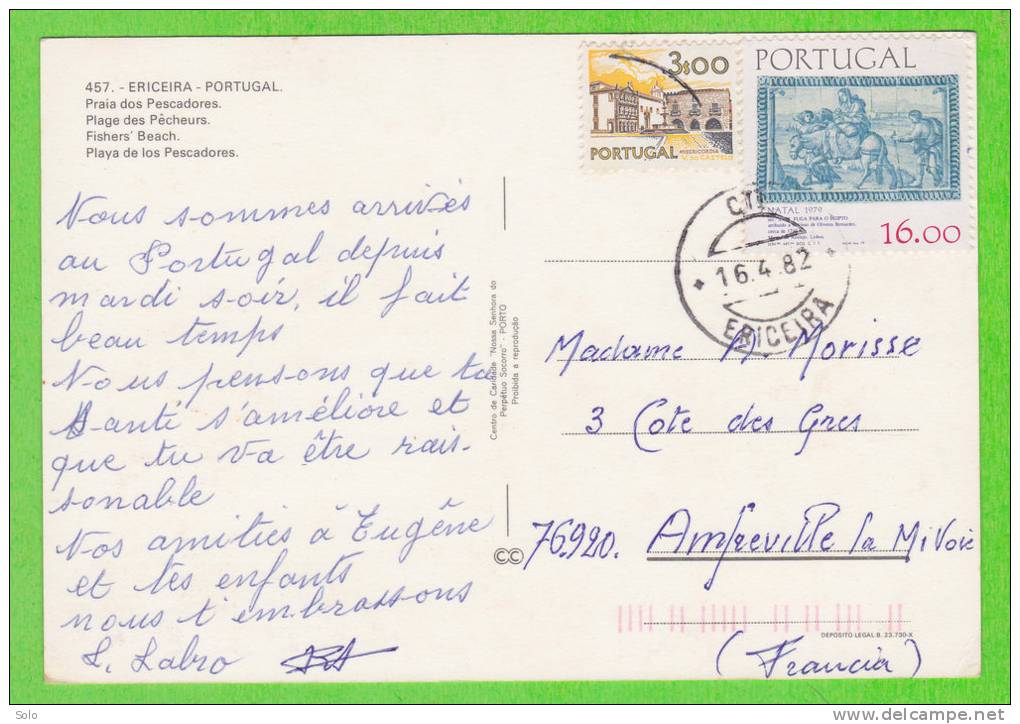 457. - ERICEIRA - PORTUGAL.
Praia dos Pescadores.
Plage des Pêcheurs.
Fishers' Beach.
Playa de los Pescadores.
Nous sommes arrivés
au Portugal depuis
mardi soir, il fait
beau temps
Nous pensons que ta
santé s'améliore et
que tu va être rai-
sonable
Nos amitiés à Eugêne
et tes enfants
nous t'embrassons
L. Labro
Centro de Caridade "Nossa Senhora do
Perpétuo Socorro" - PORTO
Proibida a reprodução
CC
3$00
MISERICORDIA
V. DO CASTELO
PORTUGAL
PORTUGAL
NATAL 1979
FUGA PARA O EGIPTO
16.00
CTT
16.4.82
ERICEIRA
Madame M Morisse
3 Cote des Gres
76920. Amfreville la Mivoie
DEPOSITO LEGAL B. 23.730-X
(Francia)
Solo
www.delcampe.net